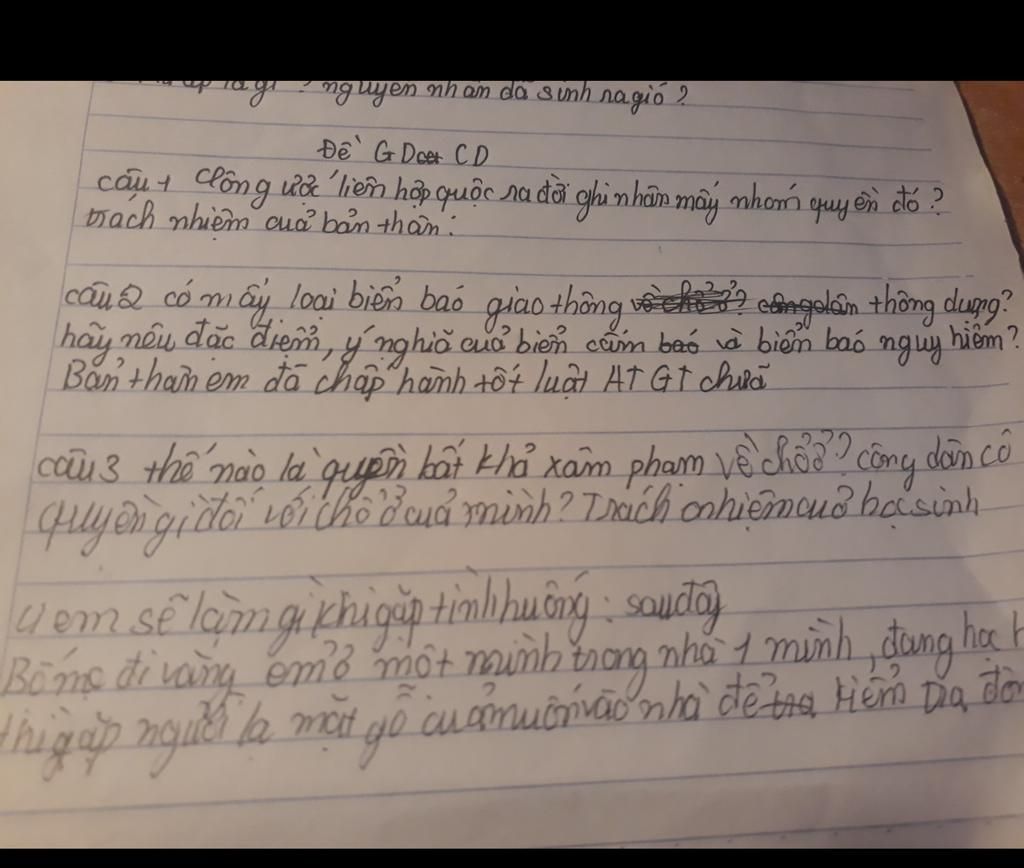 là gì? nguyên nhân đã sinh ra gió?
Đề GD CD
câu 1 công ước liên hợp quốc ra đời ghi nhân mấy nhóm quyền đó?
trách nhiệm cuả bản thân:
câu 2 có mấy loại biển baó giao thông thông dụng?
hãy nêu đặc điểm, ý nghiã cuả biển cấm và biển baó nguy hiểm?
Bản thân em đã chấp hành tốt luật ATGT chưa
câu 3 thế nào là quyền bất khả xâm phạm về chỗ ở? công dân có
quyền gì đối với chỗ ở cuả mình? Trách nhiệm cuả học sinh
4 em sẽ làm gì khi gặp tình huống: sau đây
Bố mẹ đi vắng em ở một mình trong nhà 1 mình, đang học
thì gặp người lạ mặt gõ cưả muốn vào nhà để kiểm tra